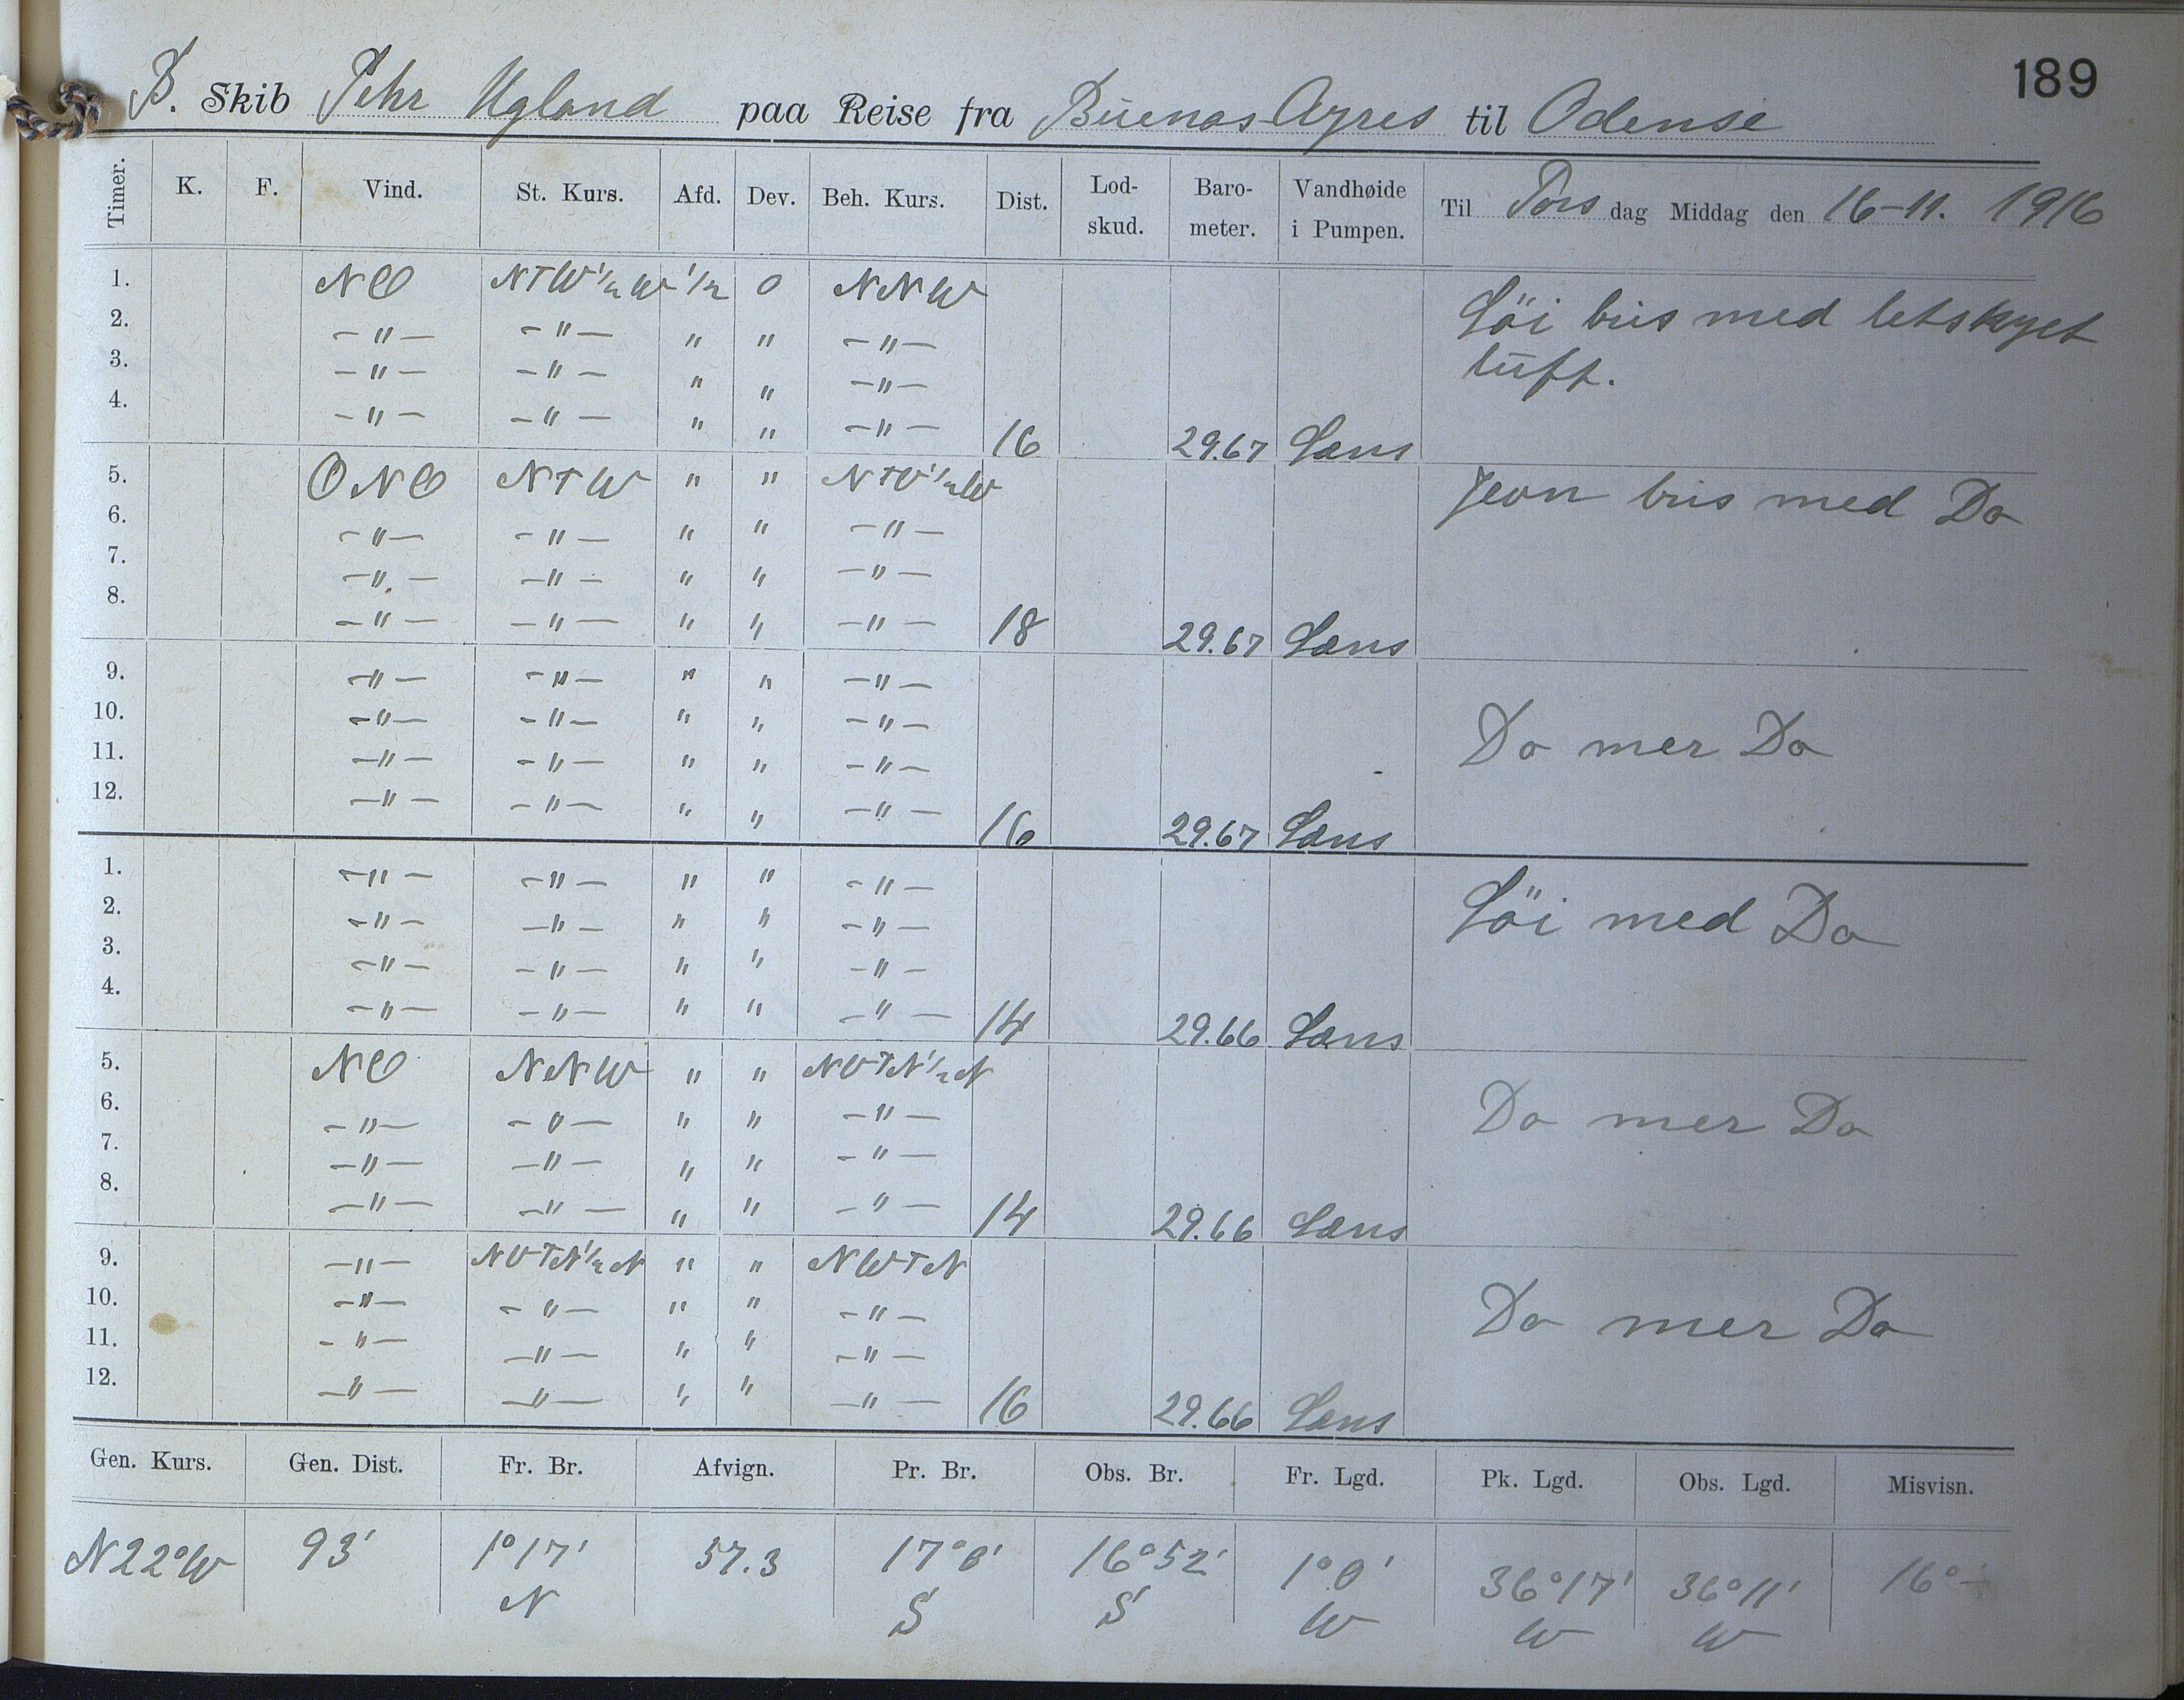 189
B. Skib Pehr Ugland paa Reise fra Buenos Ayres til Odense
Timer. K. F. Vind. St. Kurs. Afd. Dev. Beh. Kurs. Dist. Lod-skud. Baro-meter. Vandhøide i Pumpen. Til Tors dag Middag den 16-11. 1916
1. NO NTW½W ½ 0 NNW Löi bris med letskyet
2. -"- -"- " " -"- luft.
3. -"- -"- " " -"-
4. -"- -"- " " -"- 16 29.67 Læns
5. ONO NTW " " NTW½W Jevn bris med Do
6. -"- -"- " " -"-
7. -"- -"- " " -"-
8. -"- -"- " " -"- 18 29.67 Læns
9. -"- -"- " " -"-
10. -"- -"- " " -"- Do mer Do
11. -"- -"- " " -"-
12. -"- -"- " " -"- 16 29.67 Læns
1. -"- -"- " " -"-
2. -"- -"- " " -"- Löi med Do
3. -"- -"- " " -"-
4. -"- -"- " " -"- 14 29.66 Læns
5. NO NNW " " NWTN½N
6. -"- -"- " " -"- Do mer Do
7. -"- -"- " " -"-
8. -"- -"- " " -"- 14 29.66 Læns
9. -"- NWTN½N " " NWTN
10. -"- -"- " " -"- Do mer Do
11. -"- -"- " " -"-
12. -"- -"- " " -"- 16 29.66 Læns
Gen. Kurs. Gen. Dist. Fr. Br. Afvign. Pr. Br. Obs. Br. Fr. Lgd. Pk. Lgd. Obs. Lgd. Misvisn.
N22°W 93' 1°17' 57.3 17°0' 16°52' 1°0' 36°17' 36°11' 16°-
N S S W W W